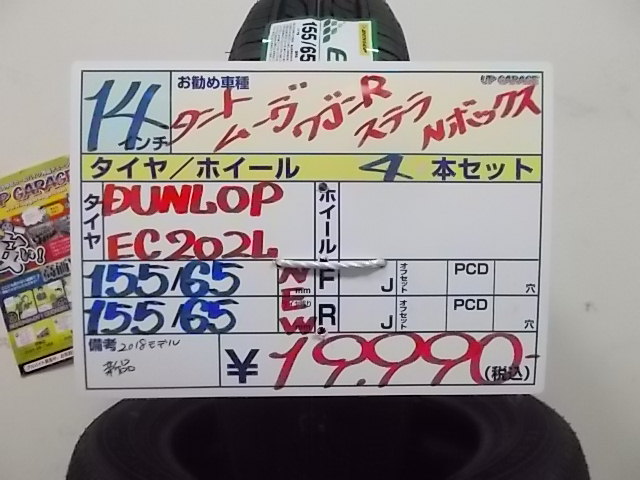 155/65
E
14インチ
お勧め車種
UP GARAGE
タント ムーヴ ワゴンR ステラ Nボックス
タイヤ/ホイール 4 本セット
タイヤ
DUNLOP
EC202L
ホイール
155/65
NEW
F J オフセット PCD 穴
155/65
R J オフセット PCD 穴
備考 2018モデル
新品
¥19.990-
(税込)
UP GARAGE